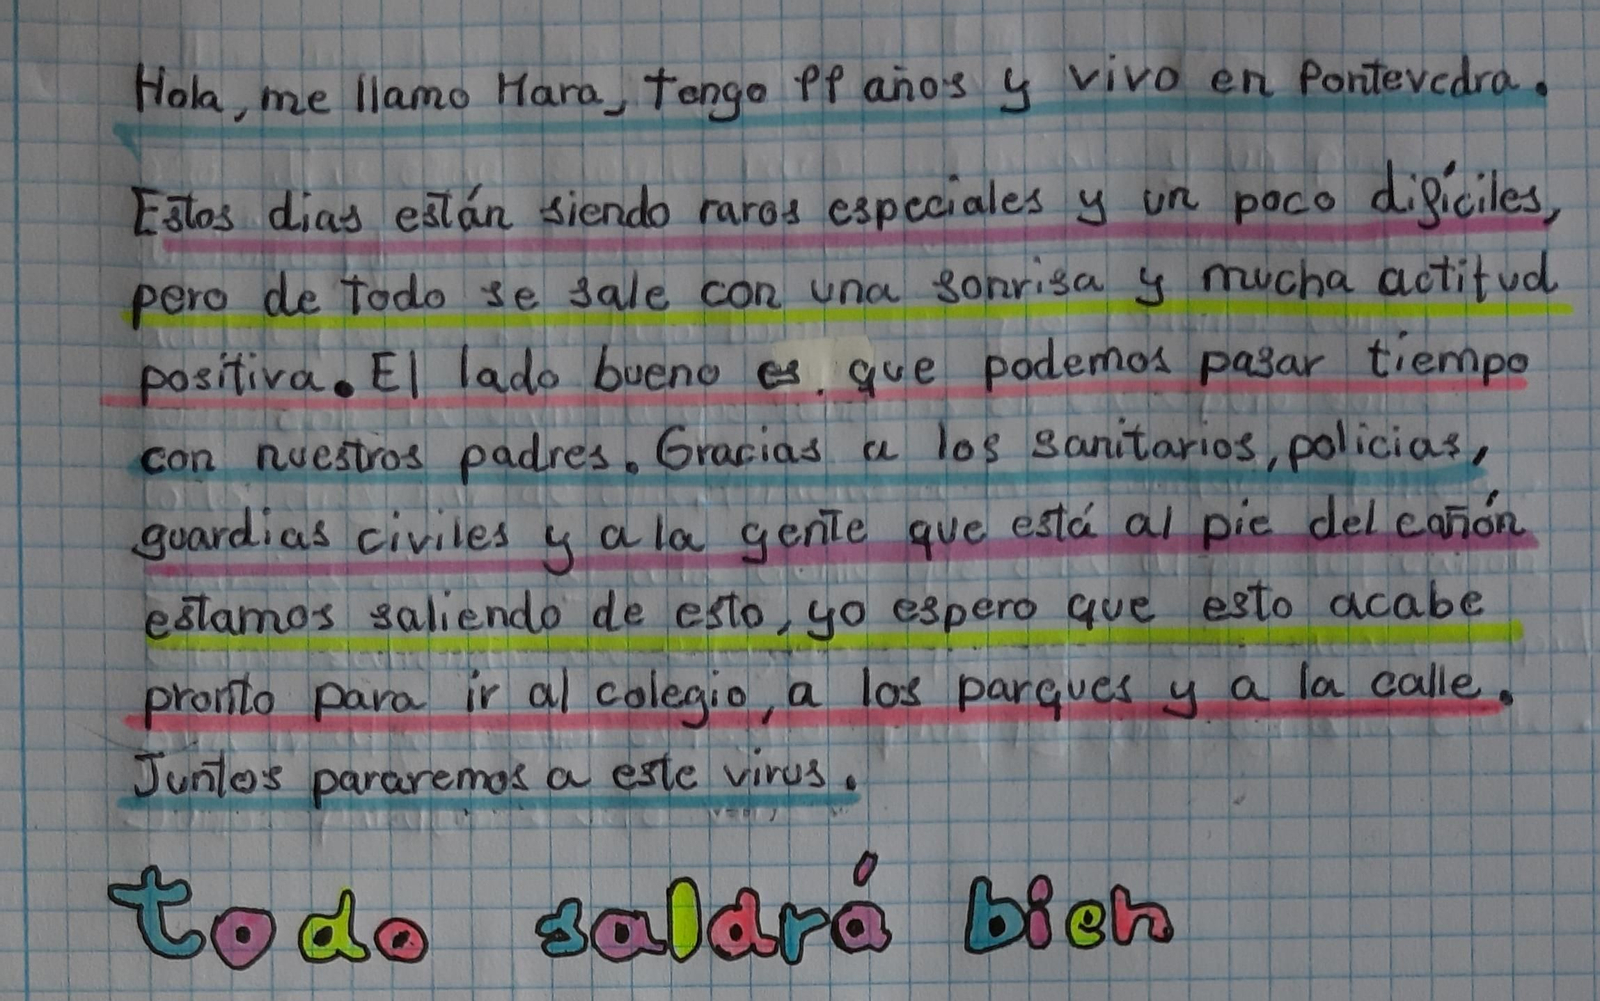 Hola, me llamo Hara, tengo 11 años y vivo en Pontevedra.
Estos dias están siendo raros especiales y un poco difíciles,
pero de todo se sale con una sonrisa y mucha actitud
positiva. El lado bueno es que podemos pasar tiempo
con nuestros padres. Gracias a los sanitarios, policias,
guardias civiles y a la gente que está al pie del cañón
estamos saliendo de esto, yo espero que esto acabe
pronto para ir al colegio, a los parques y a la calle.
Juntos pararemos a este virus.
todo saldrá bien